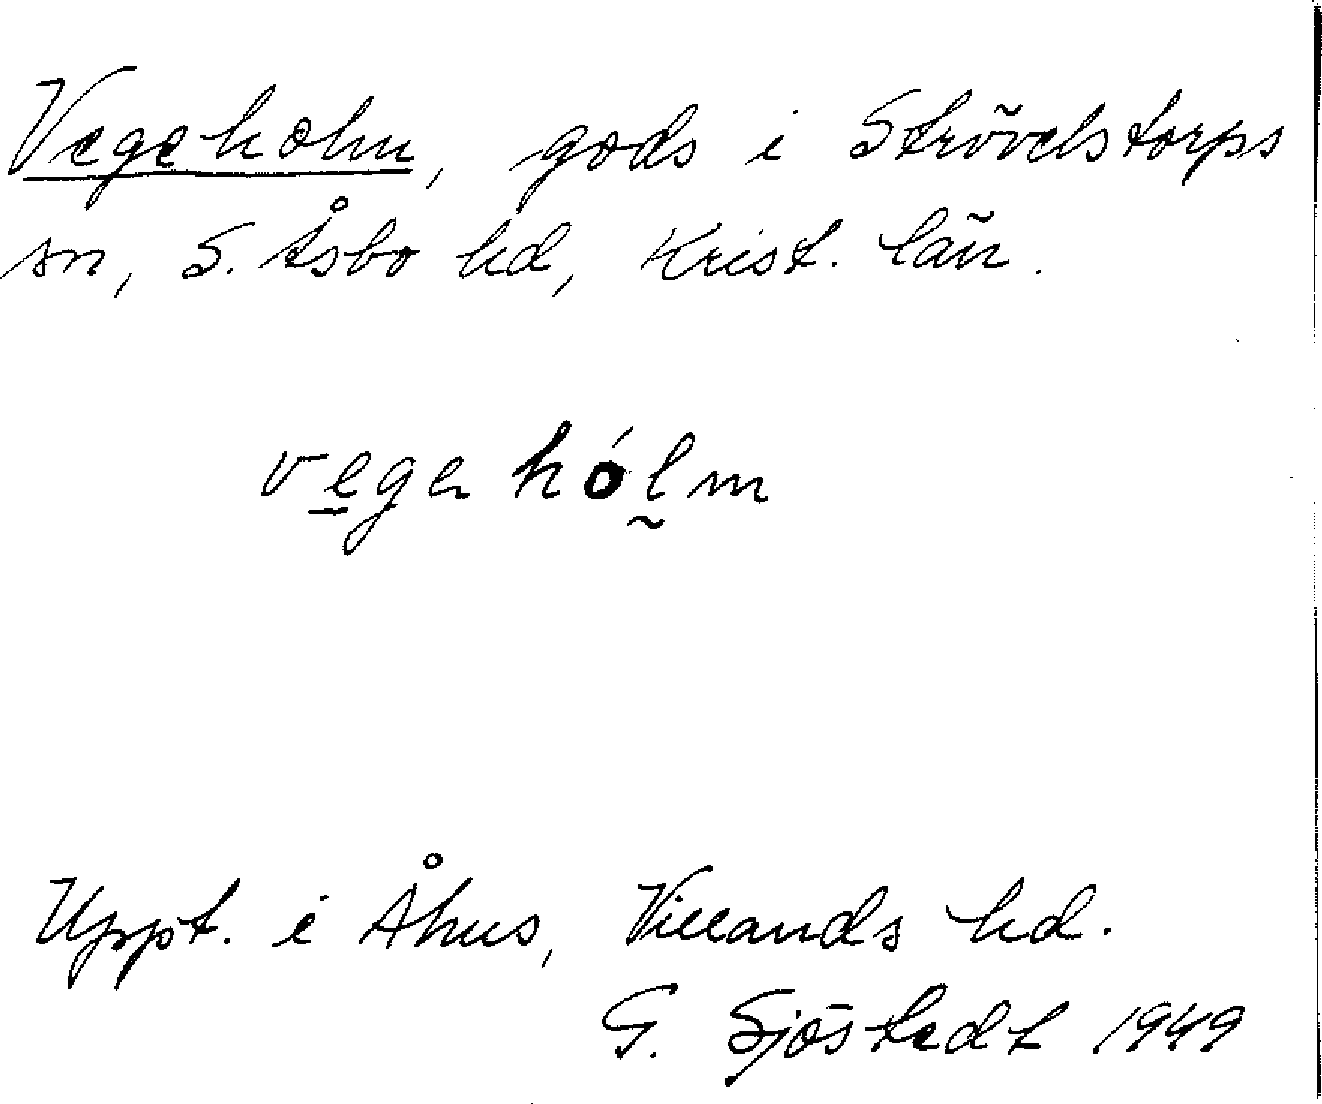 Vegeholm, gods i Strövelstorps
sn, S. Åsbo hd, Krist. län.
vegahólm
Uppt. i Åhus, Villands hd.
G. Sjöstedt 1949